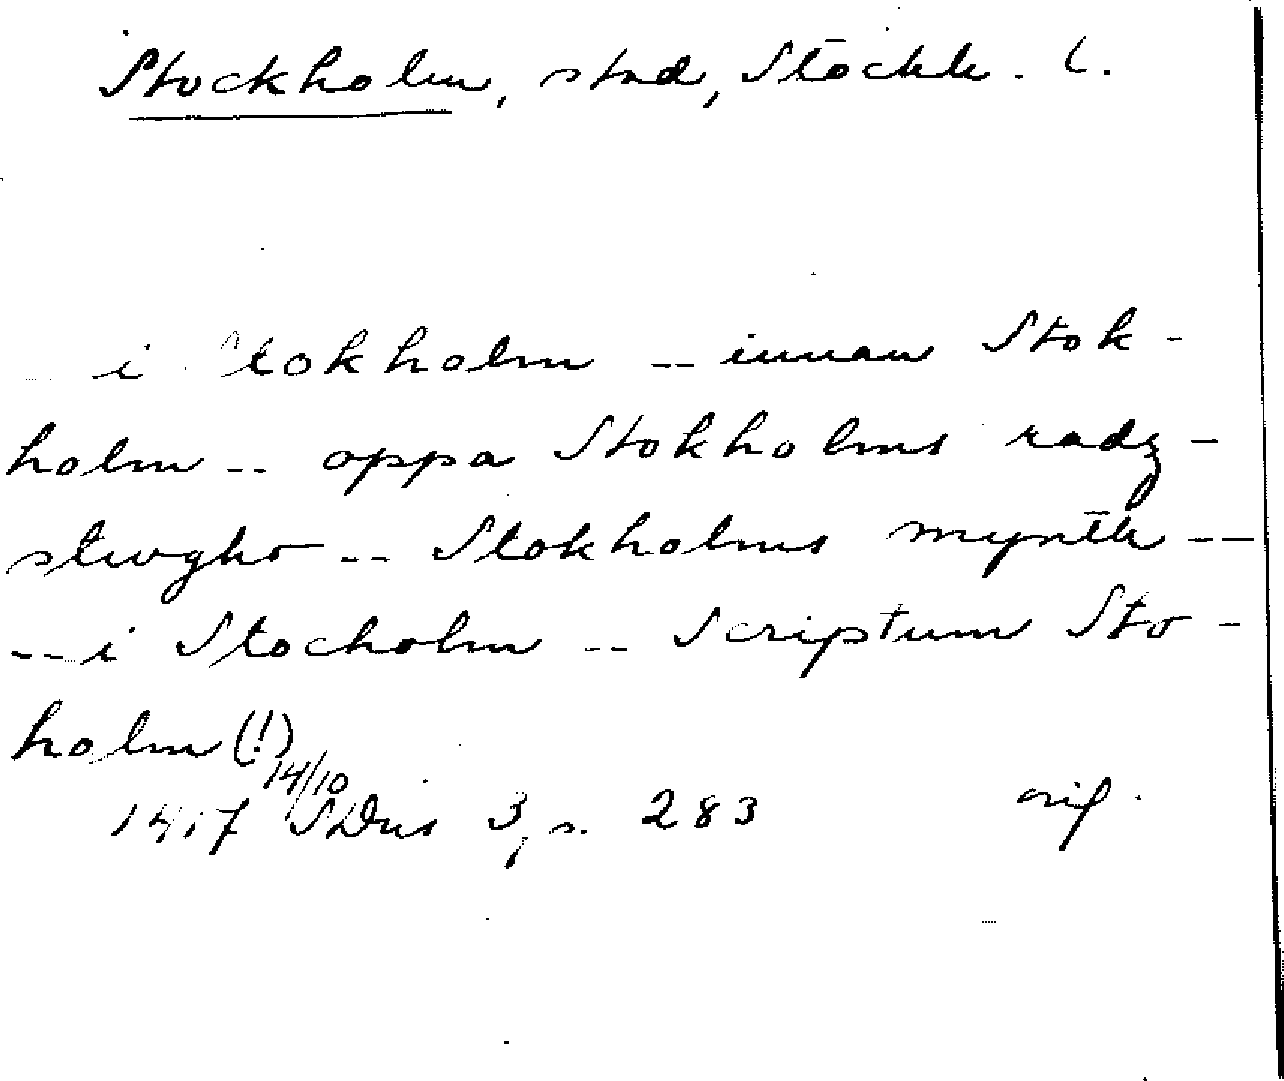 Stockholm, stad, Stockh. l.
i Stokholm -- innan Stok-
holm -- oppa Stokholms radz-
stwgho -- Stokholms mynth --
-- i Stocholm -- Scriptum Sto-
holm (!)
14/10
1417 SDns 3, s. 283 orig.